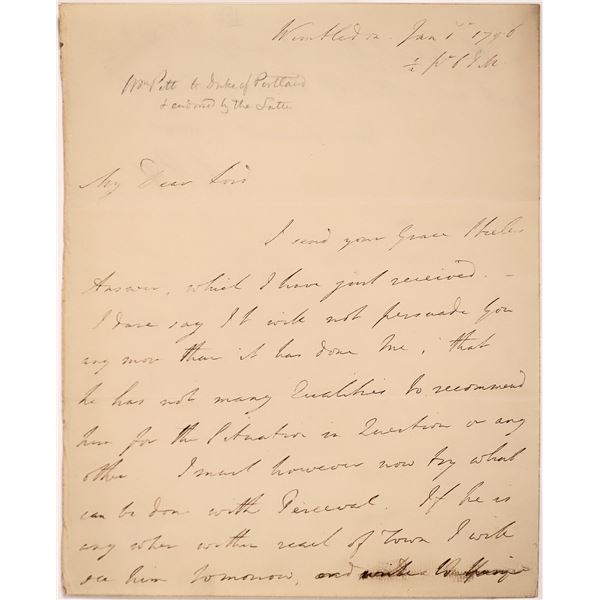 Wimbledon Jan 1st 1796
½ pt 6 P.M.
Wm Pitt to Duke of Portland
& endorsed by the Latter
My Dear Lord
I send your Grace Steele's
Answer, which I have just received. –
I dare say It will not persuade You
any more than it has done Me, that
he has not many Qualities to recommend
him for the Situation in Question or any
other I must however now try what
can be done with Perceval. If he is
any where within reach of Town I will
see him tomorrow, and